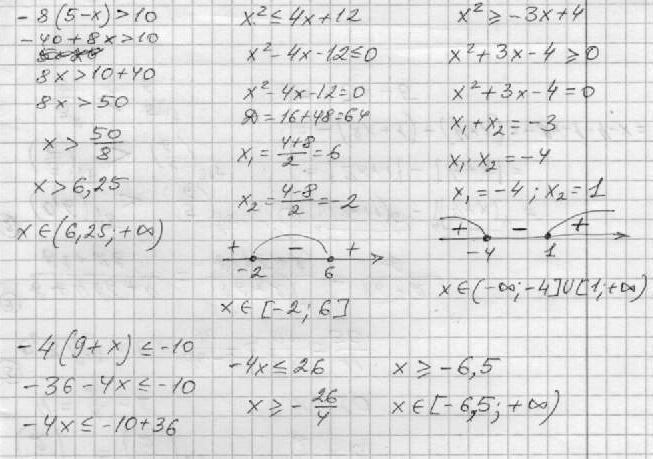 -8(5-x)>10
-40+8x>10
8x>10+40
8x>50
x>50/8
x>6,25
x∈(6,25;+∞)
x²≤4x+12
x²-4x-12≤0
x²-4x-12=0
D=16+48=64
x₁=(4+8)/2=6
x₂=(4-8)/2=-2
+ - +
-2 6
x∈[-2;6]
x²≥-3x+4
x²+3x-4≥0
x²+3x-4=0
x₁+x₂=-3
x₁·x₂=-4
x₁=-4; x₂=1
+ - +
-4 1
x∈(-∞;-4]∪[1;+∞)
-4(9+x)≤-10
-36-4x≤-10
-4x≤-10+36
-4x≤26
x≥-26/4
x≥-6,5
x∈[-6,5;+∞)